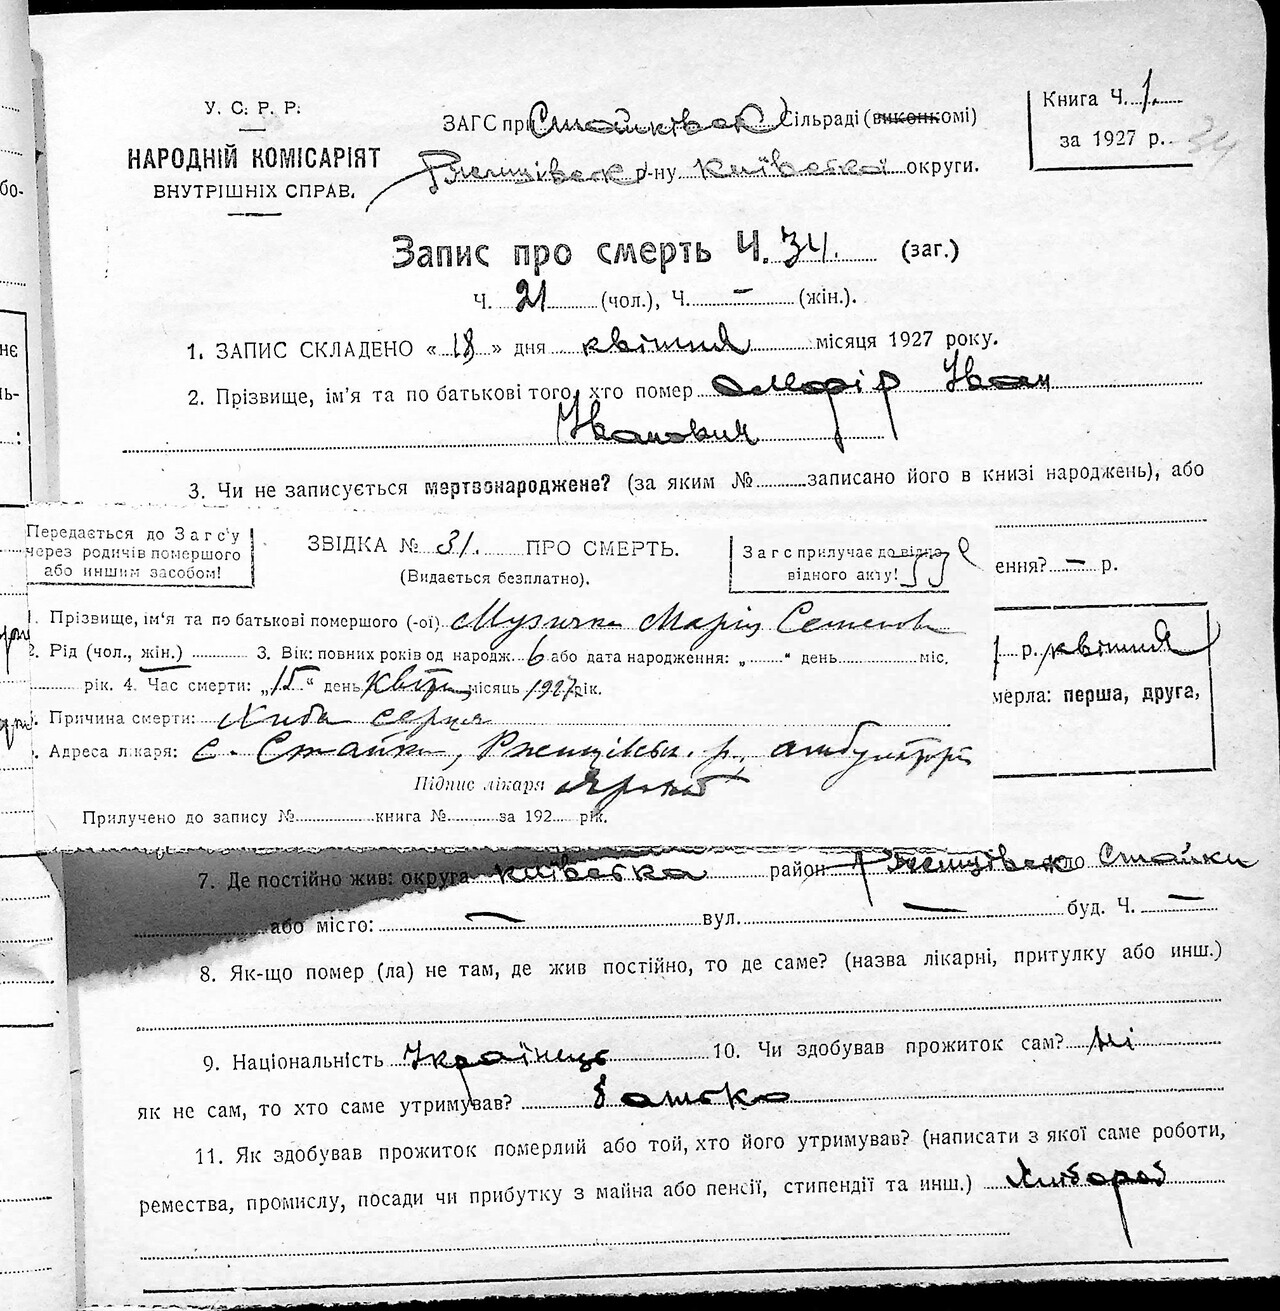 У. С. Р. Р.
НАРОДНІЙ КОМІСАРІЯТ
ВНУТРІШНІХ СПРАВ.
ЗАГС при Стайківск Сільраді (виконкомі)
Ржищівськ р-ну Київської округи.
Книга Ч. 1.
за 1927 р. 34
Запис про смерть Ч. 34. (заг.)
Ч. 21 (чол.), Ч. — (жін.).
1. ЗАПИС СКЛАДЕНО « 18 » дня квітня місяця 1927 року.
2. Прізвище, ім'я та по батькові того, хто помер Іван
Іванович
3. Чи не записується мертвонароджене? (за яким № записано його в книзі народжень), або
Передається до Загс'у
через родичів помершого
або иншим засобом!
ЗВІДКА № 31. ПРО СМЕРТЬ.
(Видається безплатно).
Загс прилучає до відпо
відного акту!
ення? — р.
1. Прізвище, ім'я та по батькові помершого (-ої) Музичка Марія Семенов
2. Рід (чол., жін.) 3. Вік: повних років од народж. 6 або дата народження: „ “ день міс.
рік. 4. Час смерти: „15“ день Квітн місяць 1927 рік.
р. квітня
мерла: перша, друга,
Причина смерти: Хиба серця
Адреса лікаря: с. Стайки, Ржищівськ. р., амбулаторія
Підпис лікаря
Прилучено до запису № книга № за 192 рік.
7. Де постійно жив: округа Київська район Ржищівск Стайки
або місто: — вул. — буд. Ч. —
8. Як-що помер (ла) не там, де жив постійно, то де саме? (назва лікарні, притулку або инш.)
9. Національність Українець 10. Чи здобував прожиток сам? Ні
як не сам, то хто саме утримував? батько
11. Як здобував прожиток померлий або той, хто його утримував? (написати з якої саме роботи,
ремества, промислу, посади чи прибутку з майна або пенсії, стипендії та инш.) Хлібороб